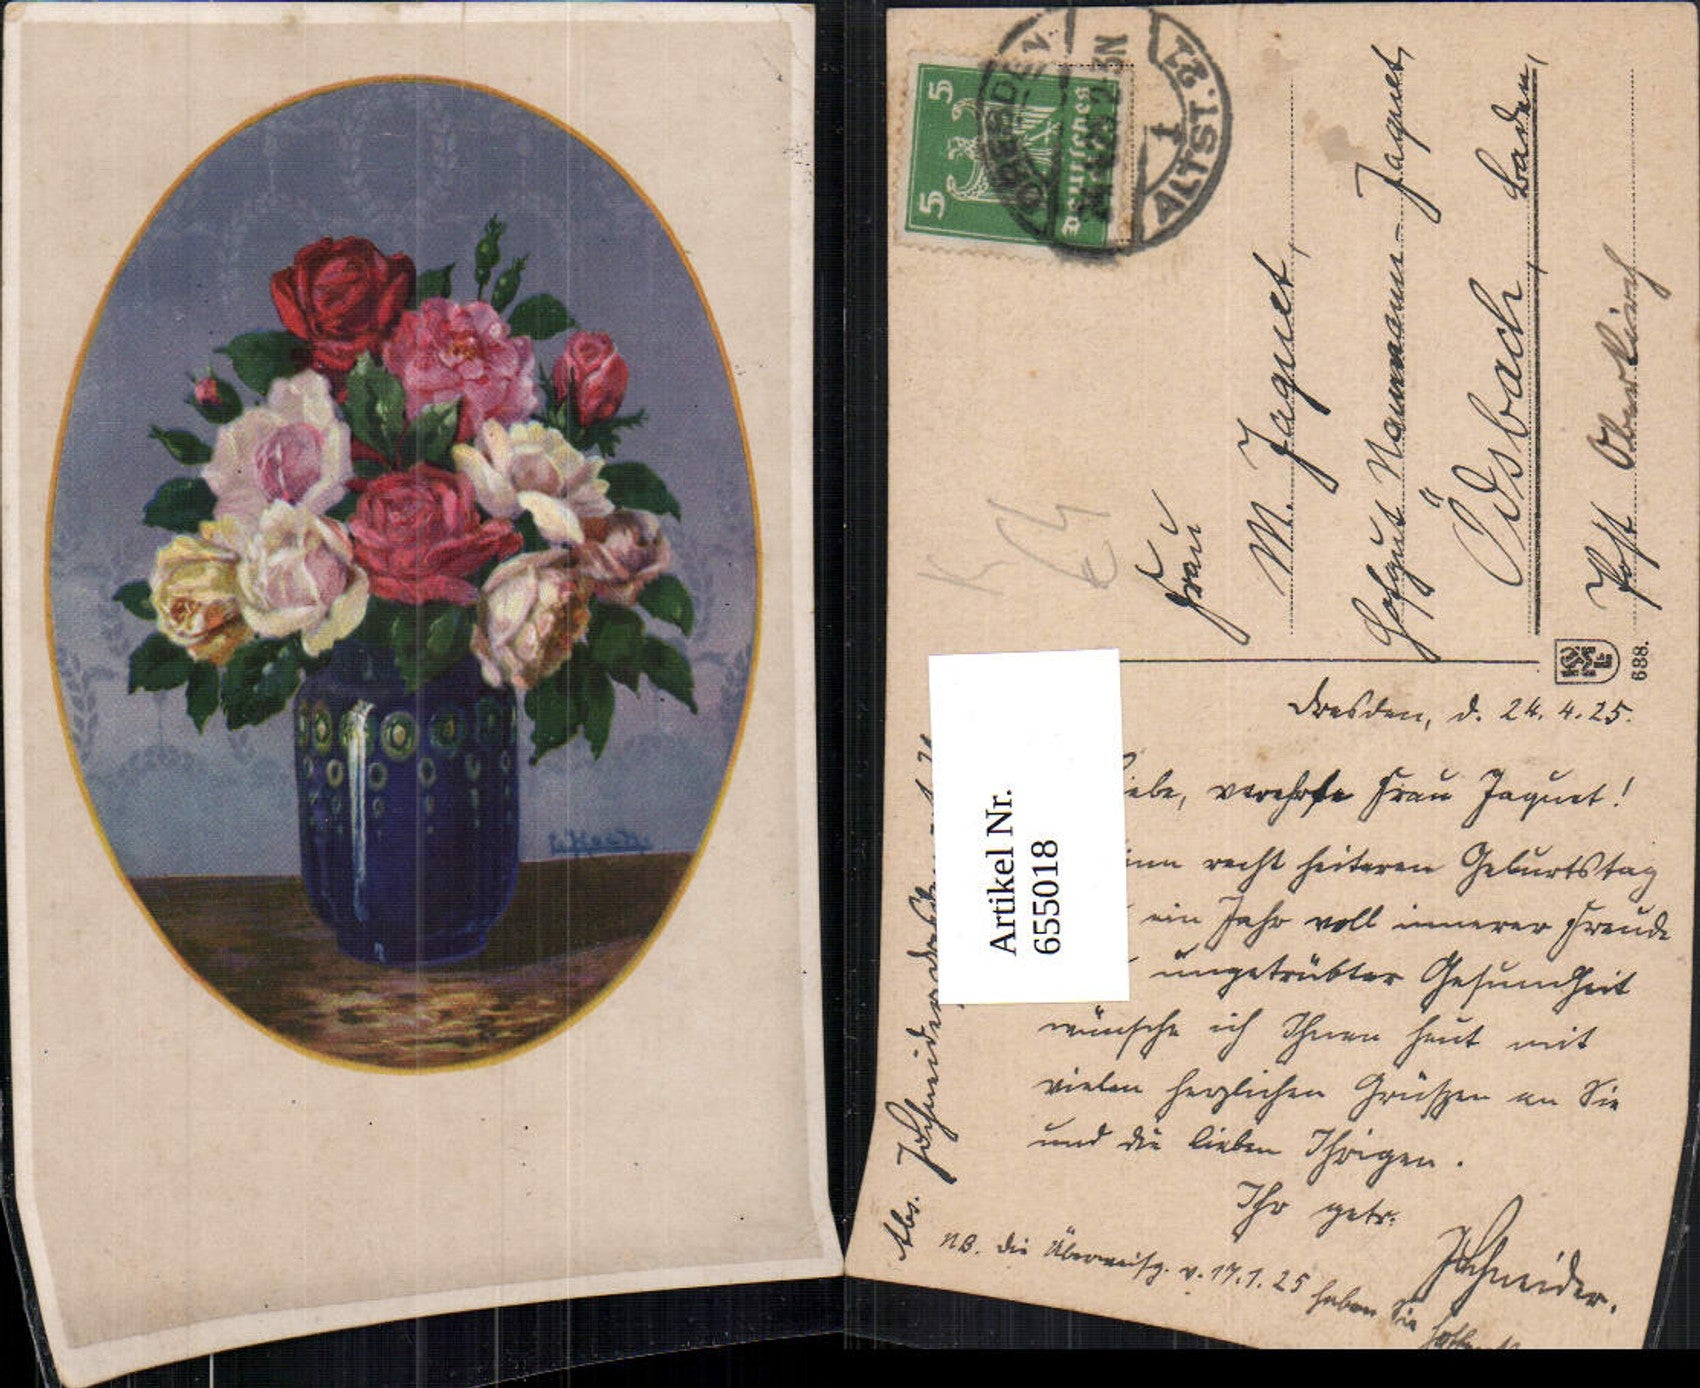 5
5
Deutsches Reich
DRESDEN
ALTST. 1
Frau
M. Jaquet,
Hofgut Naumann-Jaquet,
Ödsbach, Baden,
Post Oberkirch
688.
Dresden, d. 24. 4. 25.
iebe, verehrte Frau Jaquet!
inen recht heiteren Geburtstag
ein Jahr voll innerer Freude
ungetrübter Gesundheit
wünsche ich Ihnen heut mit
vielen herzlichen Grüßen an Sie
und die lieben Ihrigen.
Ihr getr.
Schneider.
NB. die Überweisg. v. 17.1.25 haben Sie
Abs. Schneider Dresden
Artikel Nr.
655018